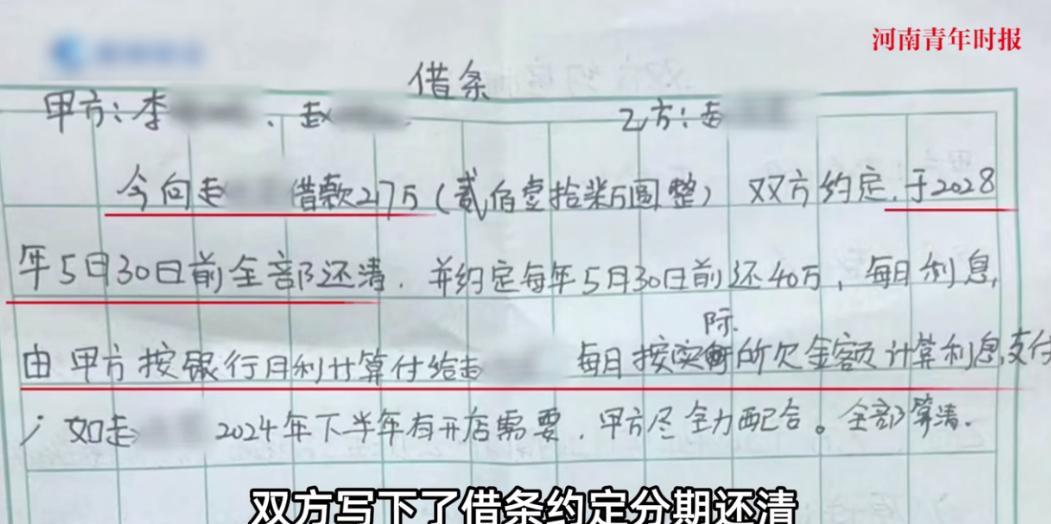 河南青年时报
借条
甲方：李 、赵 乙方：赵
今向赵 借款217万（贰佰壹拾柒万圆整） 双方约定，于2028
年5月30日前全部还清．并约定每年5月30日前还40万，每月利息，
际
由甲方按银行月利计算付给赵 每月按实所欠金额计算利息支付
如赵 2024年下半年有开店需要，甲方尽全力配合。全部算清．
双方写下了借条约定分期还清